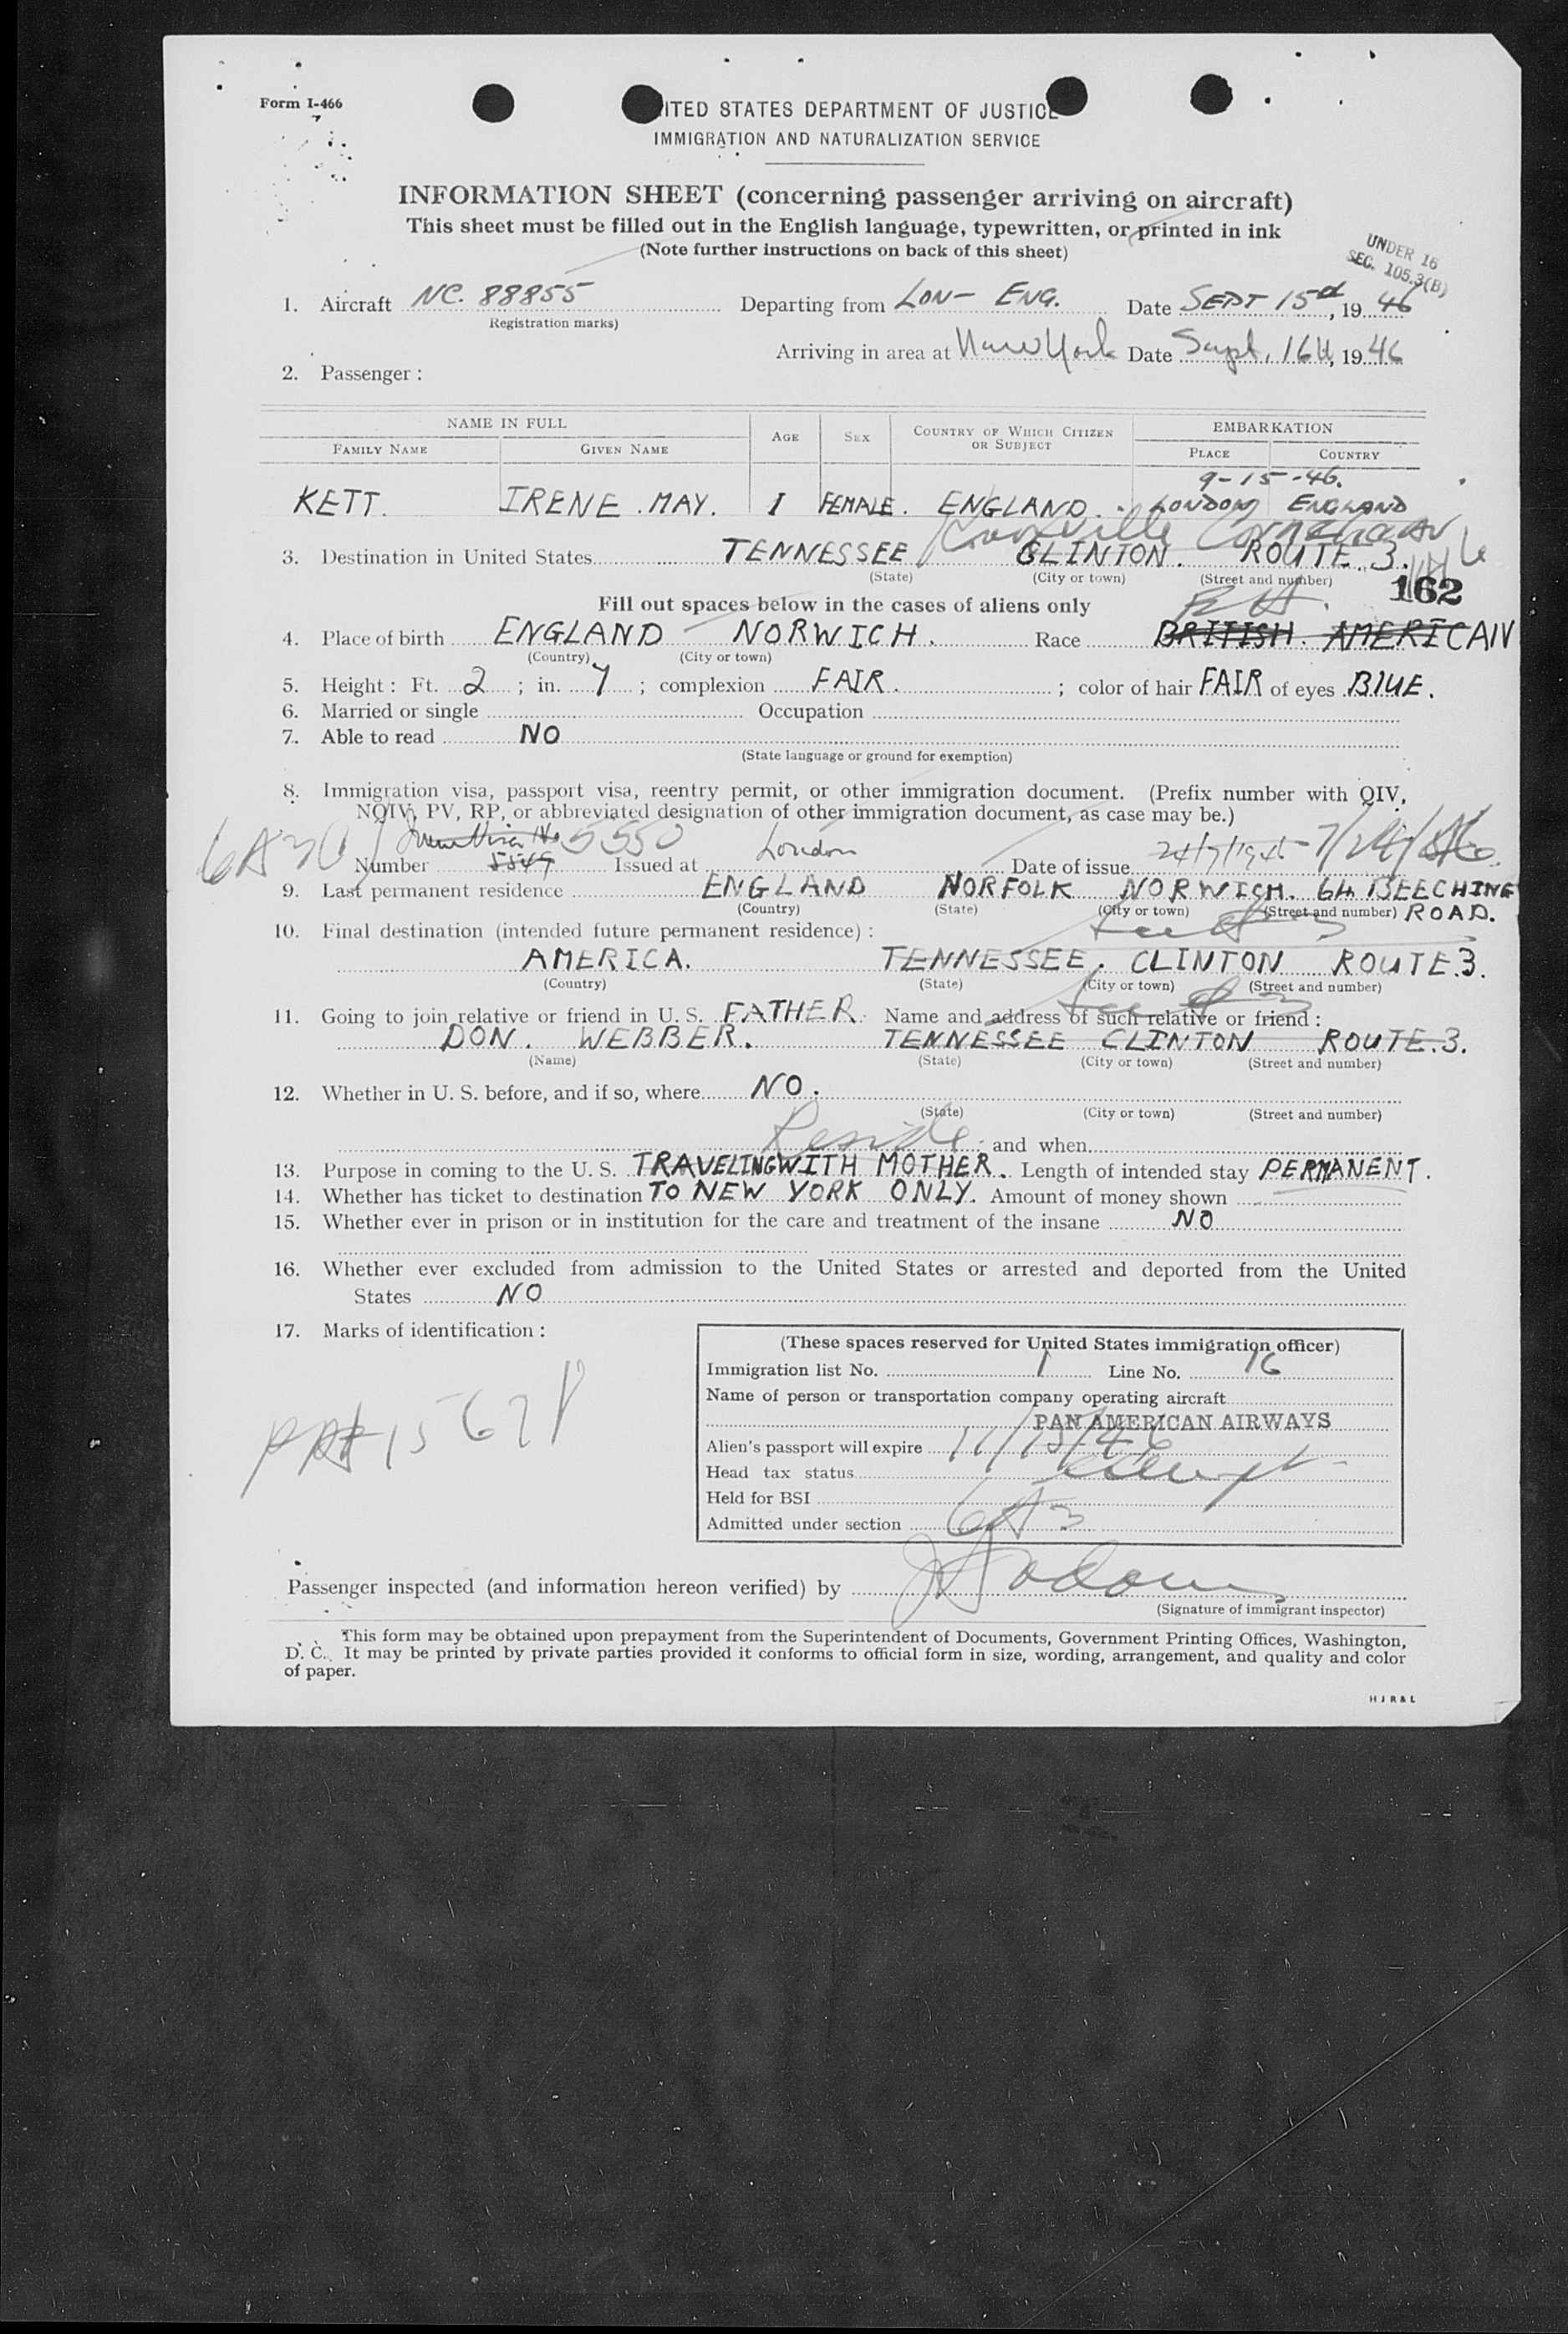 Form I-466
ITED STATES DEPARTMENT OF JUSTICE
IMMIGRATION AND NATURALIZATION SERVICE
INFORMATION SHEET (concerning passenger arriving on aircraft)
This sheet must be filled out in the English language, typewritten, or printed in ink
(Note further instructions on back of this sheet)
UNDER 16
SEC. 105.3(B)
1. Aircraft NC. 88855 Departing from LON- ENG. Date SEPT 15th, 19 46
(Registration marks)
Arriving in area at New York Date Sept. 16th, 19 46
2. Passenger :
NAME IN FULL AGE SEX COUNTRY OF WHICH CITIZEN OR SUBJECT EMBARKATION
FAMILY NAME GIVEN NAME PLACE COUNTRY
9-15-46.
KETT. IRENE . MAY. 1 FEMALE . ENGLAND . LONDON ENGLAND
Knoxville
3. Destination in United States TENNESSEE CLINTON. ROUTE. 3.
(State) (City or town) (Street and number)
162
Fill out spaces below in the cases of aliens only
4. Place of birth ENGLAND - NORWICH. Race BRITISH. AMERICAN
(Country) (City or town)
5. Height : Ft. 2 ; in. 7 ; complexion FAIR. ; color of hair FAIR of eyes BLUE.
6. Married or single Occupation
7. Able to read NO
(State language or ground for exemption)
8. Immigration visa, passport visa, reentry permit, or other immigration document. (Prefix number with QIV,
NQIV, PV, RP, or abbreviated designation of other immigration document, as case may be.)
6A3 5550
Number 5549 Issued at London Date of issue 24/7/1946 7/24/46
9. Last permanent residence ENGLAND NORFOLK NORWICH. 64 BEECHING
(Country) (State) (City or town) (Street and number) ROAD.
10. Final destination (intended future permanent residence) :
AMERICA. TENNESSEE. CLINTON ROUTE.3.
(Country) (State) (City or town) (Street and number)
11. Going to join relative or friend in U. S. FATHER. Name and address of such relative or friend :
DON. WEBBER. TENNESSEE CLINTON ROUTE.3.
(Name) (State) (City or town) (Street and number)
12. Whether in U. S. before, and if so, where NO.
(State) (City or town) (Street and number)
Reside and when
13. Purpose in coming to the U. S. TRAVELING WITH MOTHER. Length of intended stay PERMANENT.
14. Whether has ticket to destination TO NEW YORK ONLY. Amount of money shown
15. Whether ever in prison or in institution for the care and treatment of the insane NO
16. Whether ever excluded from admission to the United States or arrested and deported from the United
States NO
17. Marks of identification :
(These spaces reserved for United States immigration officer)
Immigration list No. 1 Line No. 16
Name of person or transportation company operating aircraft
PAN AMERICAN AIRWAYS
Alien's passport will expire 11/15/46
Head tax status exempt
Held for BSI
Admitted under section 6A3
Passenger inspected (and information hereon verified) by
(Signature of immigrant inspector)
This form may be obtained upon prepayment from the Superintendent of Documents, Government Printing Offices, Washington,
D. C. It may be printed by private parties provided it conforms to official form in size, wording, arrangement, and quality and color
of paper.
H J R & L